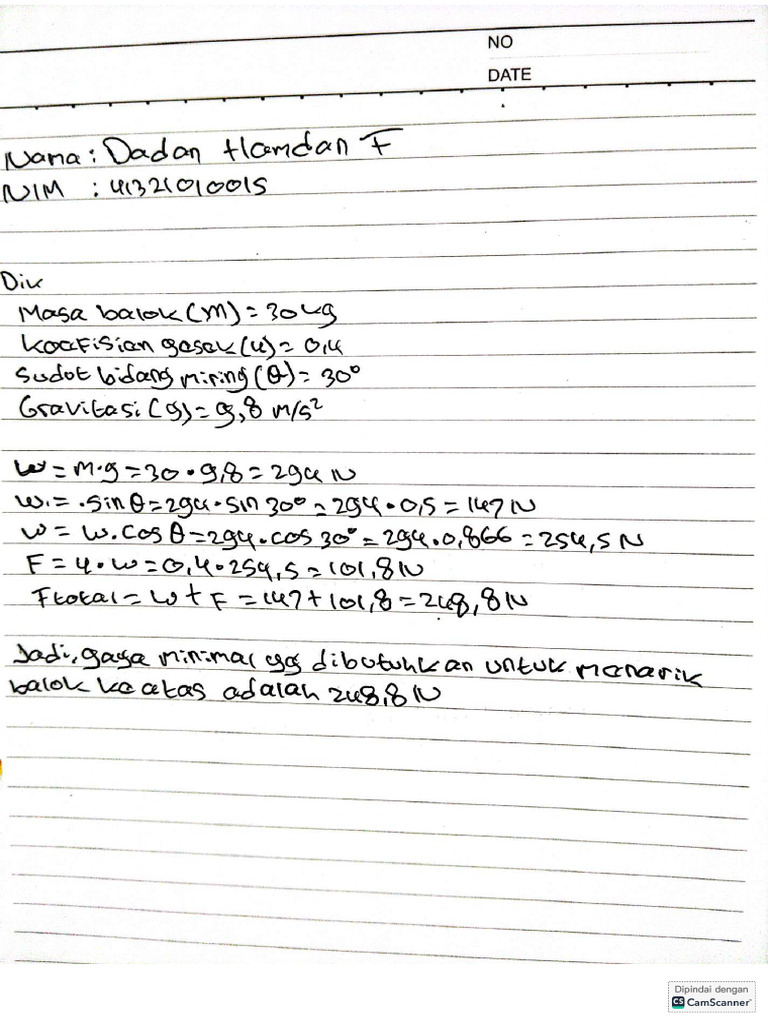 NO
DATE
Nama : Dadan Hamdan F
NIM : 41321010015
Dik
Masa balok (m) = 30 kg
Koefisian gesek (u) = 0,4
Sudot bidang miring (θ) = 30°
Gravitasi (g) = 9,8 m/s²
W = m·g = 30 · 9,8 = 294 N
W. = ·sin θ = 294 · sin 30° = 294 · 0,5 = 147 N
W = W·cos θ = 294 · cos 30° = 294 · 0,866 = 254,5 N
F = 4 · w = 0,4 · 254,5 = 101,8 N
Ftotal = W + F = 147 + 101,8 = 248,8 N
Jadi, gaya minimal yg dibutuhkan untuk menarik
balok ke atas adalah 248,8 N
Dipindai dengan
CS CamScanner